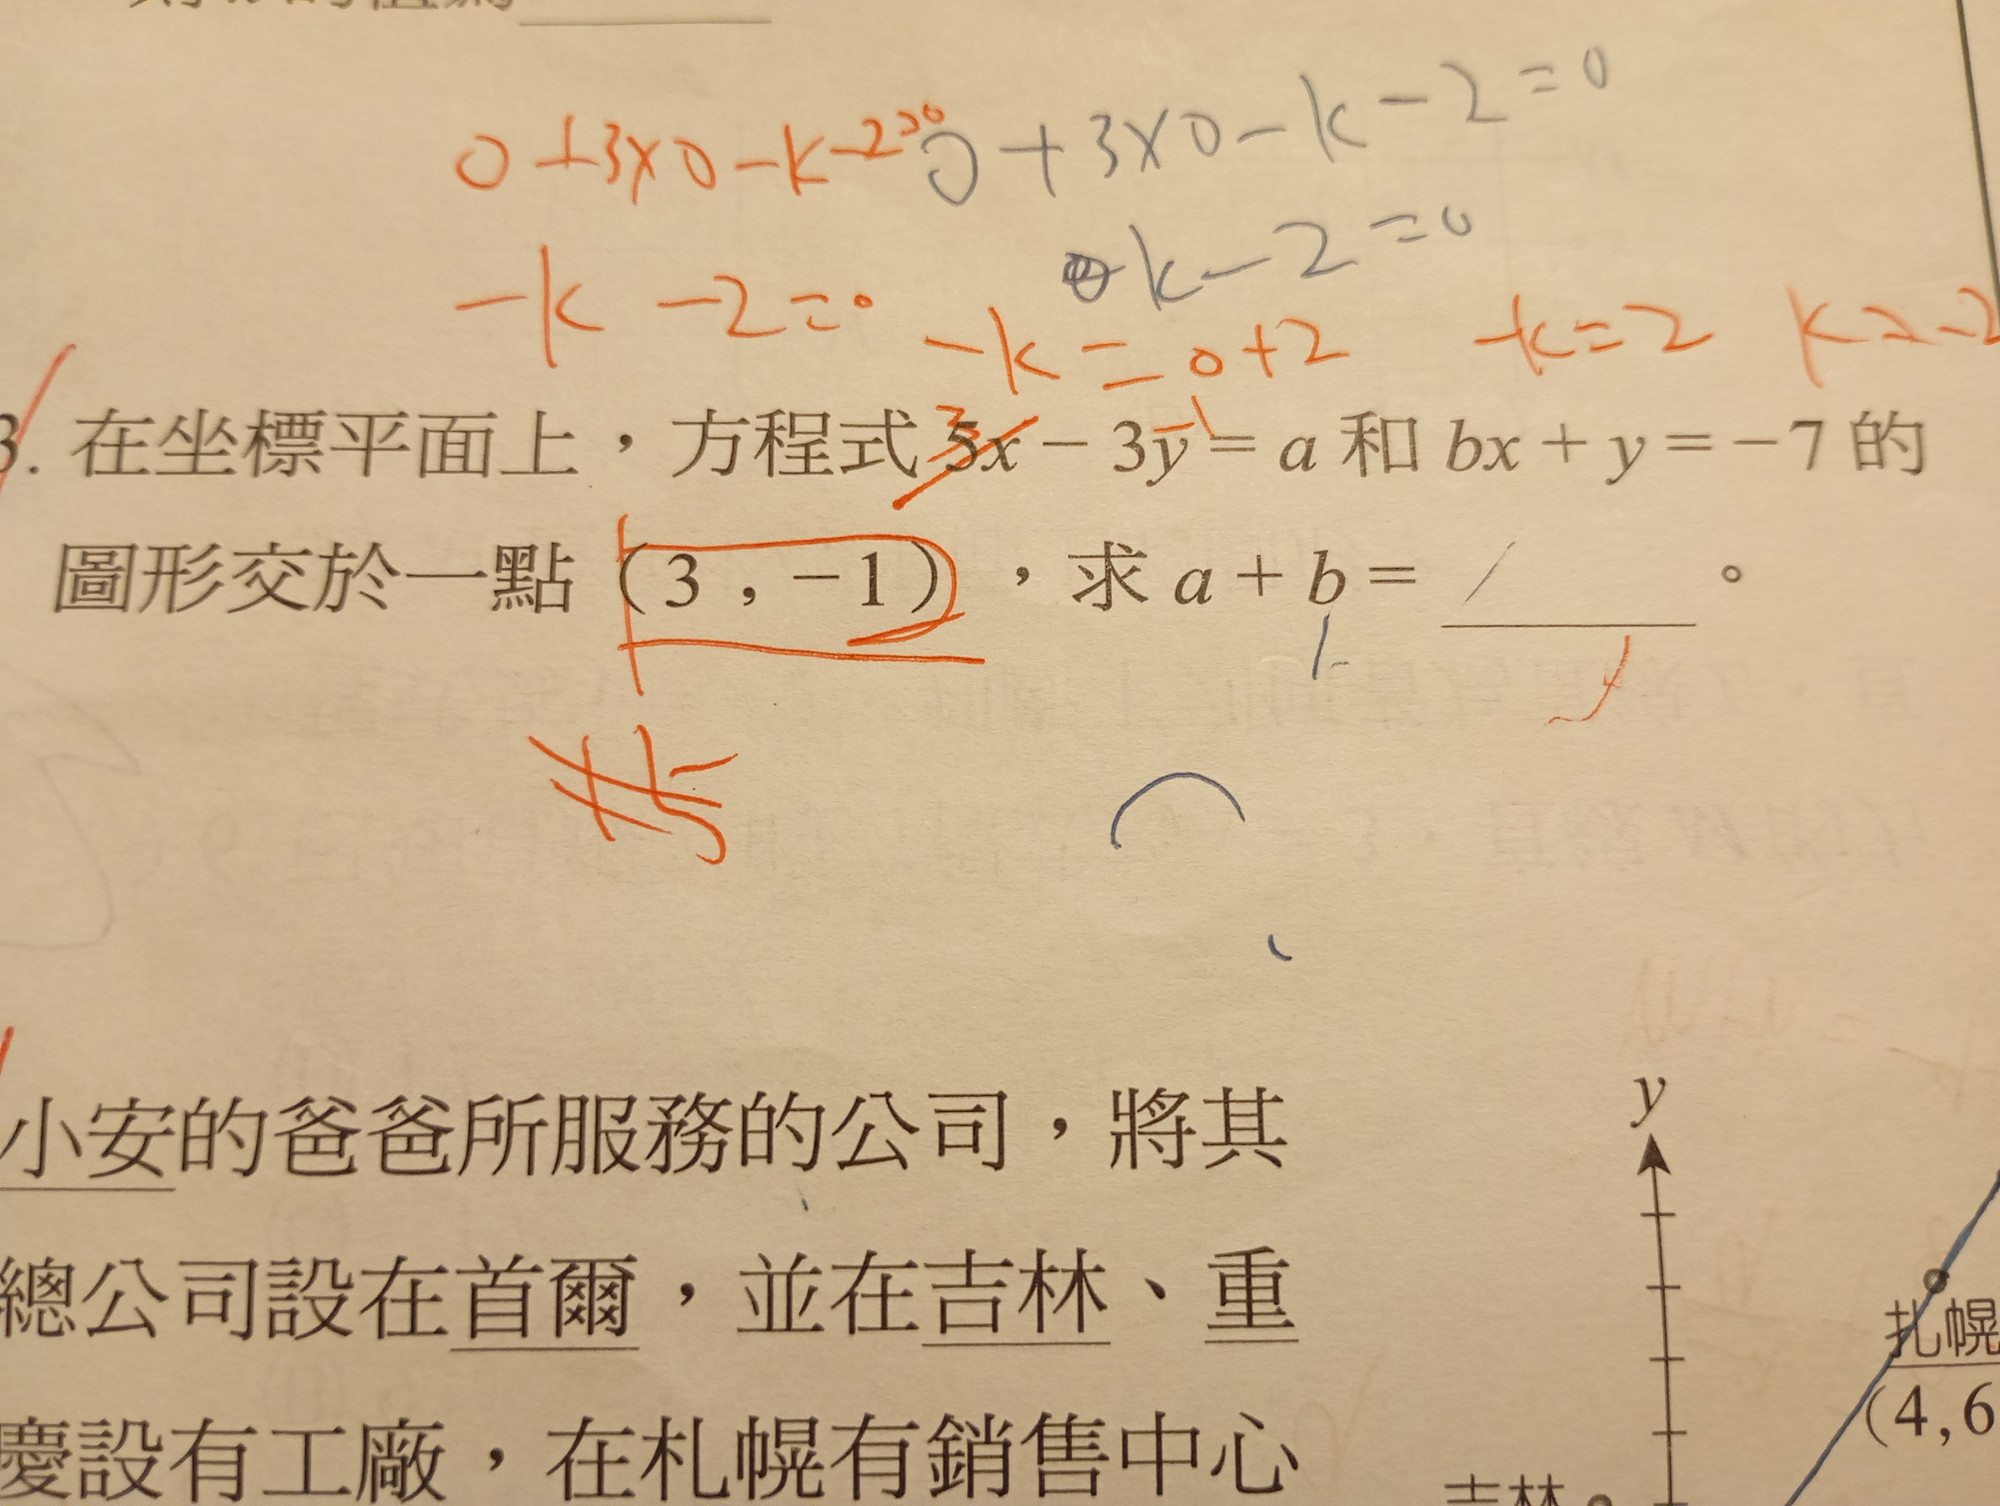 0+3×0-k-2=0
0+3×0-k-2=0
-k-2=0
k-2=0
-k=0+2
-k=2
k=-2
3. 在坐標平面上，方程式 5x－3y＝a 和 bx＋y＝－7 的
3
-1
圖形交於一點（3，－1），求 a＋b＝
。
小安的爸爸所服務的公司，將其
總公司設在首爾，並在吉林、重
慶設有工廠，在札幌有銷售中心
y
札幌
(4,6
吉林